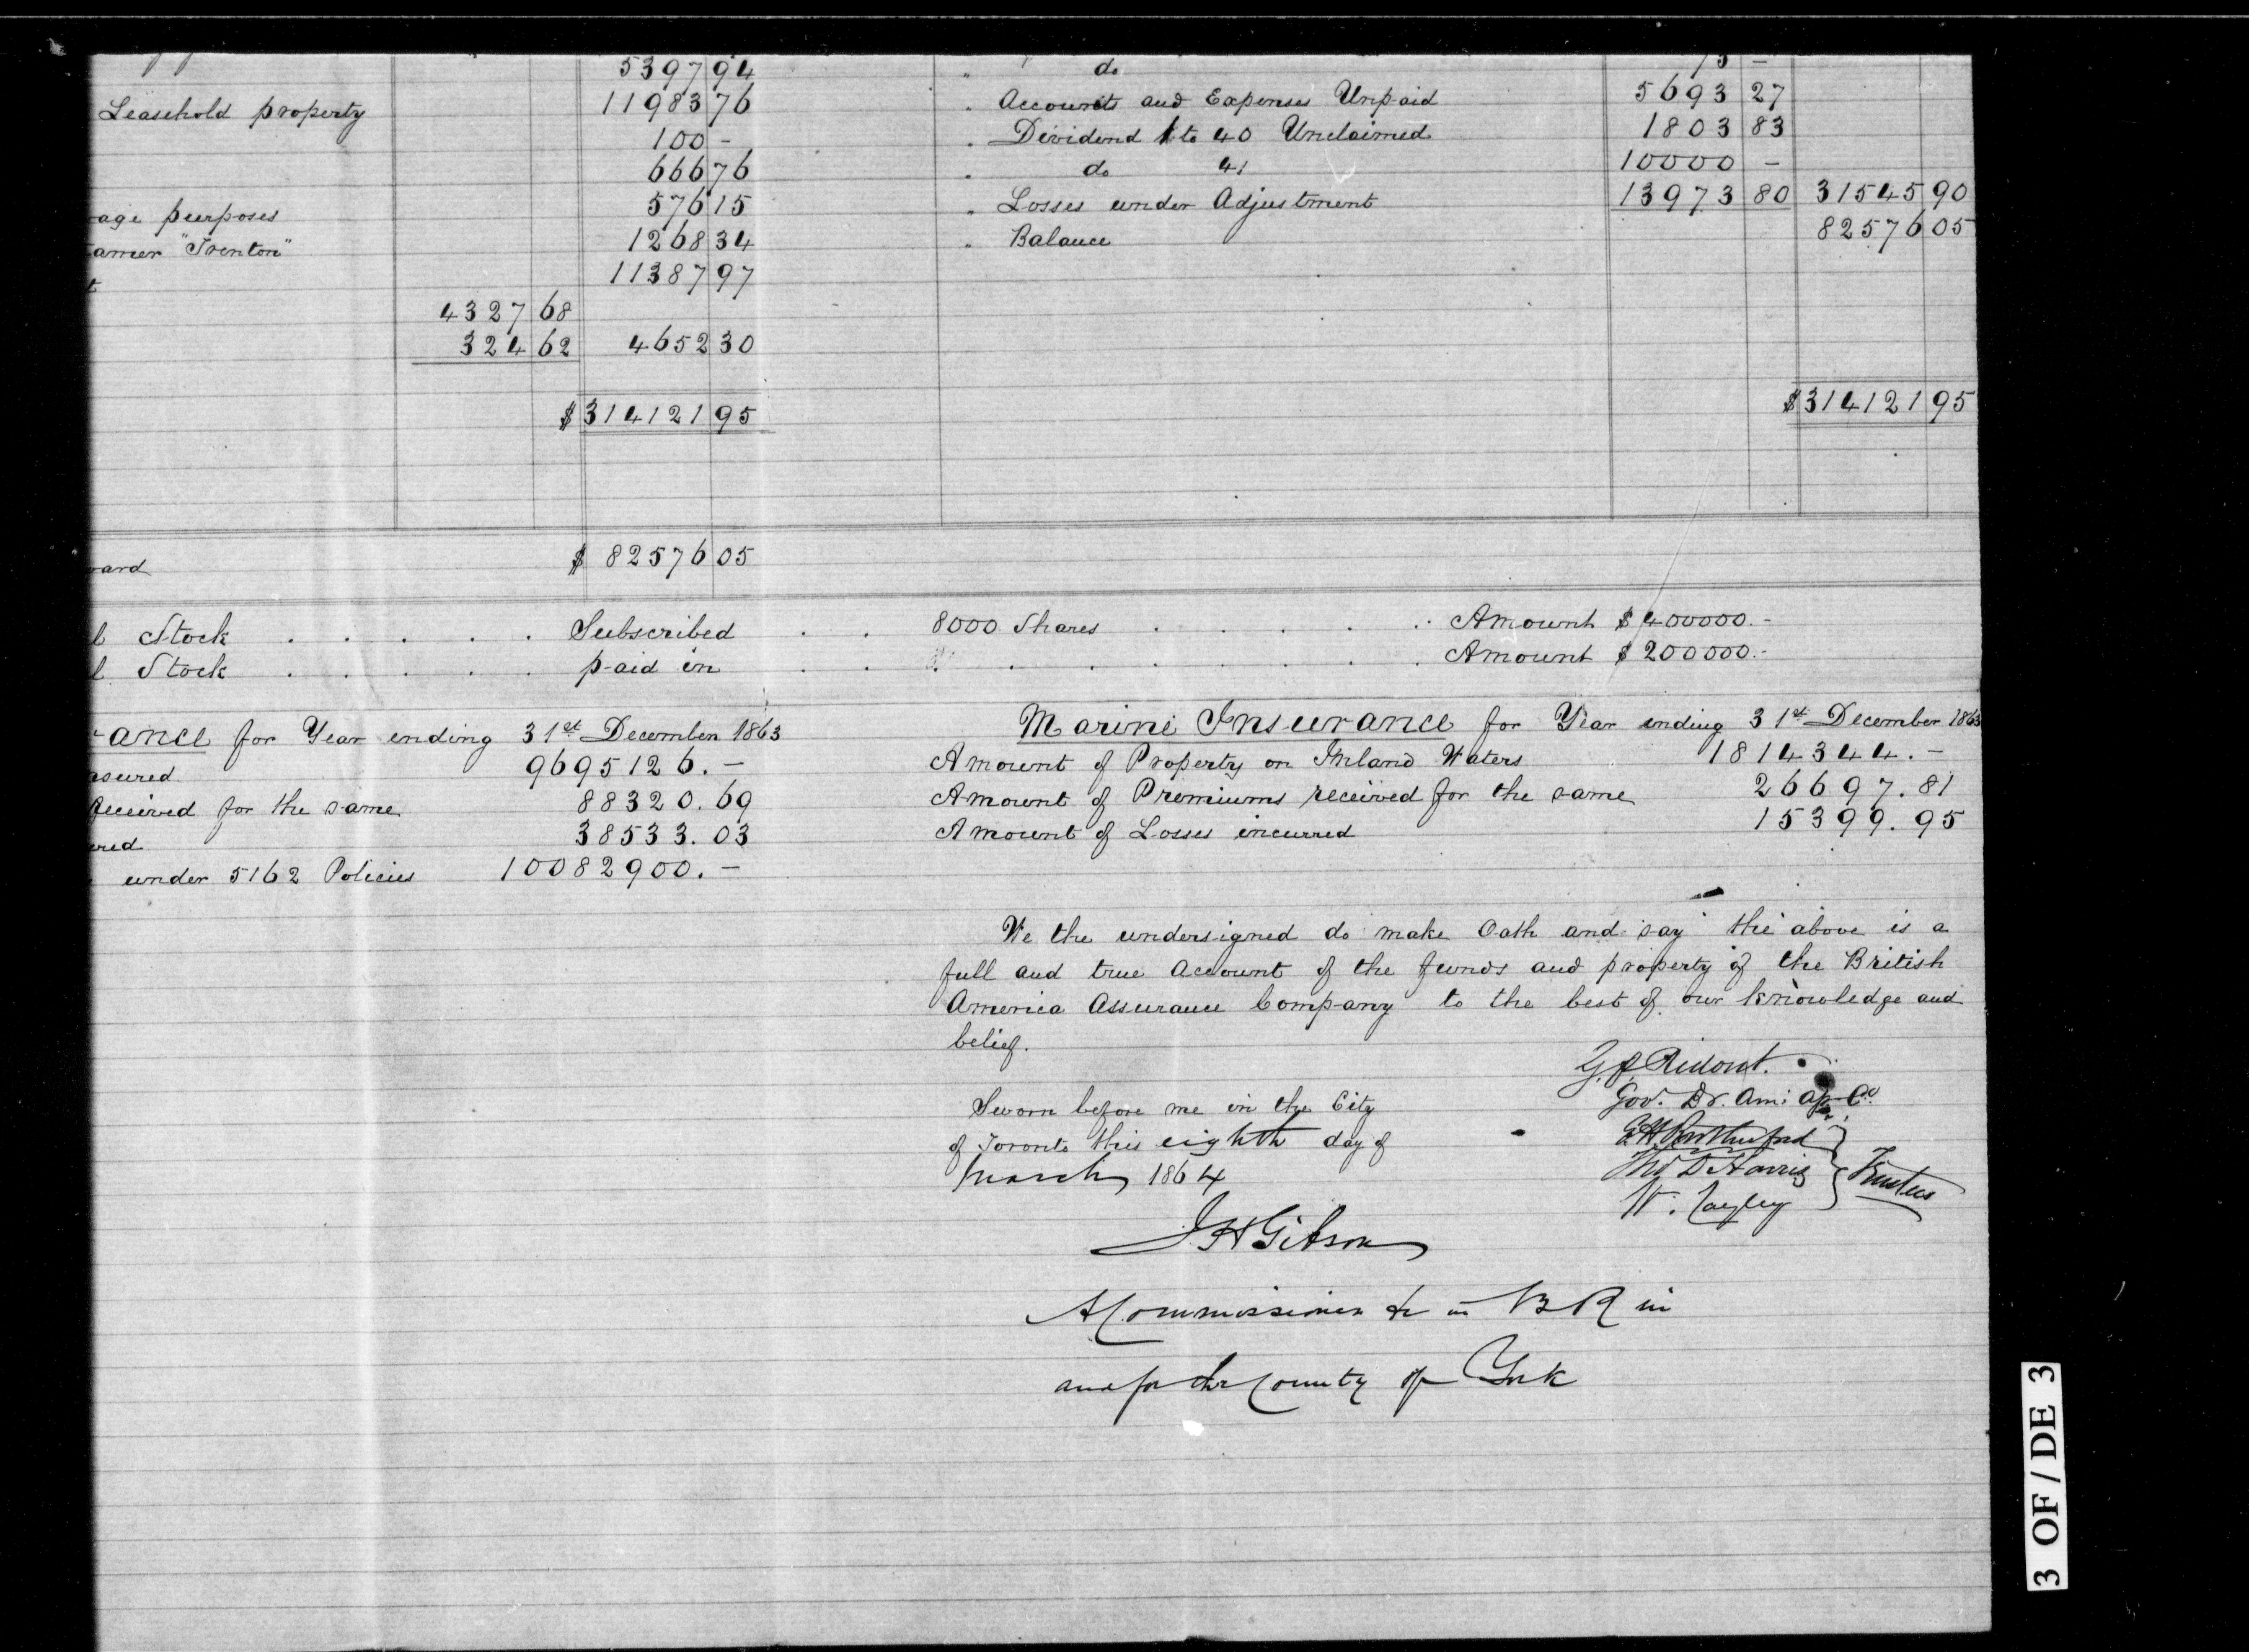 5397 94
Leasehold property 11983 76
100 -
666 76
age purposes 576 15
amer "Trenton" 1268 34
t 11387 97
4327 68
324 62 4652 30
$314121 95
" do 75 -
" Accounts and Expenses Unpaid 5693 27
" Dividend 1 to 40 Unclaimed 1803 83
" do 41 10000 -
" Losses under Adjustment 13973 80 31545 90
" Balance 82576 05
$314121 95
ward $ 82576 05
l Stock . . . . . . Subscribed . . 8000 Shares . . . . . . Amount $ 400000.-
l Stock . . . . . . paid in . . . . . . . . . . Amount $ 200000.-
ance for Year ending 31st December 1863
nsured 9695126. -
received for the same 88320. 69
rred 38533. 03
under 5162 Policies 10082900. -
Marine Insurance for Year ending 31st December 1863
Amount of Property on Inland Waters 1814344. -
Amount of Premiums received for the same 26697. 81
Amount of Losses incurred 15399. 95
We the undersigned do make Oath and say the above is a
full and true Account of the funds and property of the British
America Assurance Company to the best of our knowledge and
belief.
Sworn before me in the City
of Toronto this eighth day of
March 1864
J H Gibson
A Commissioner &c in B R in
and for the County of York
Ridout.
Gov. Br. Am: Ass Co.
E H Rutherford
Thos D Harris
W. Cayley
Trustees
3 OF/DE 3